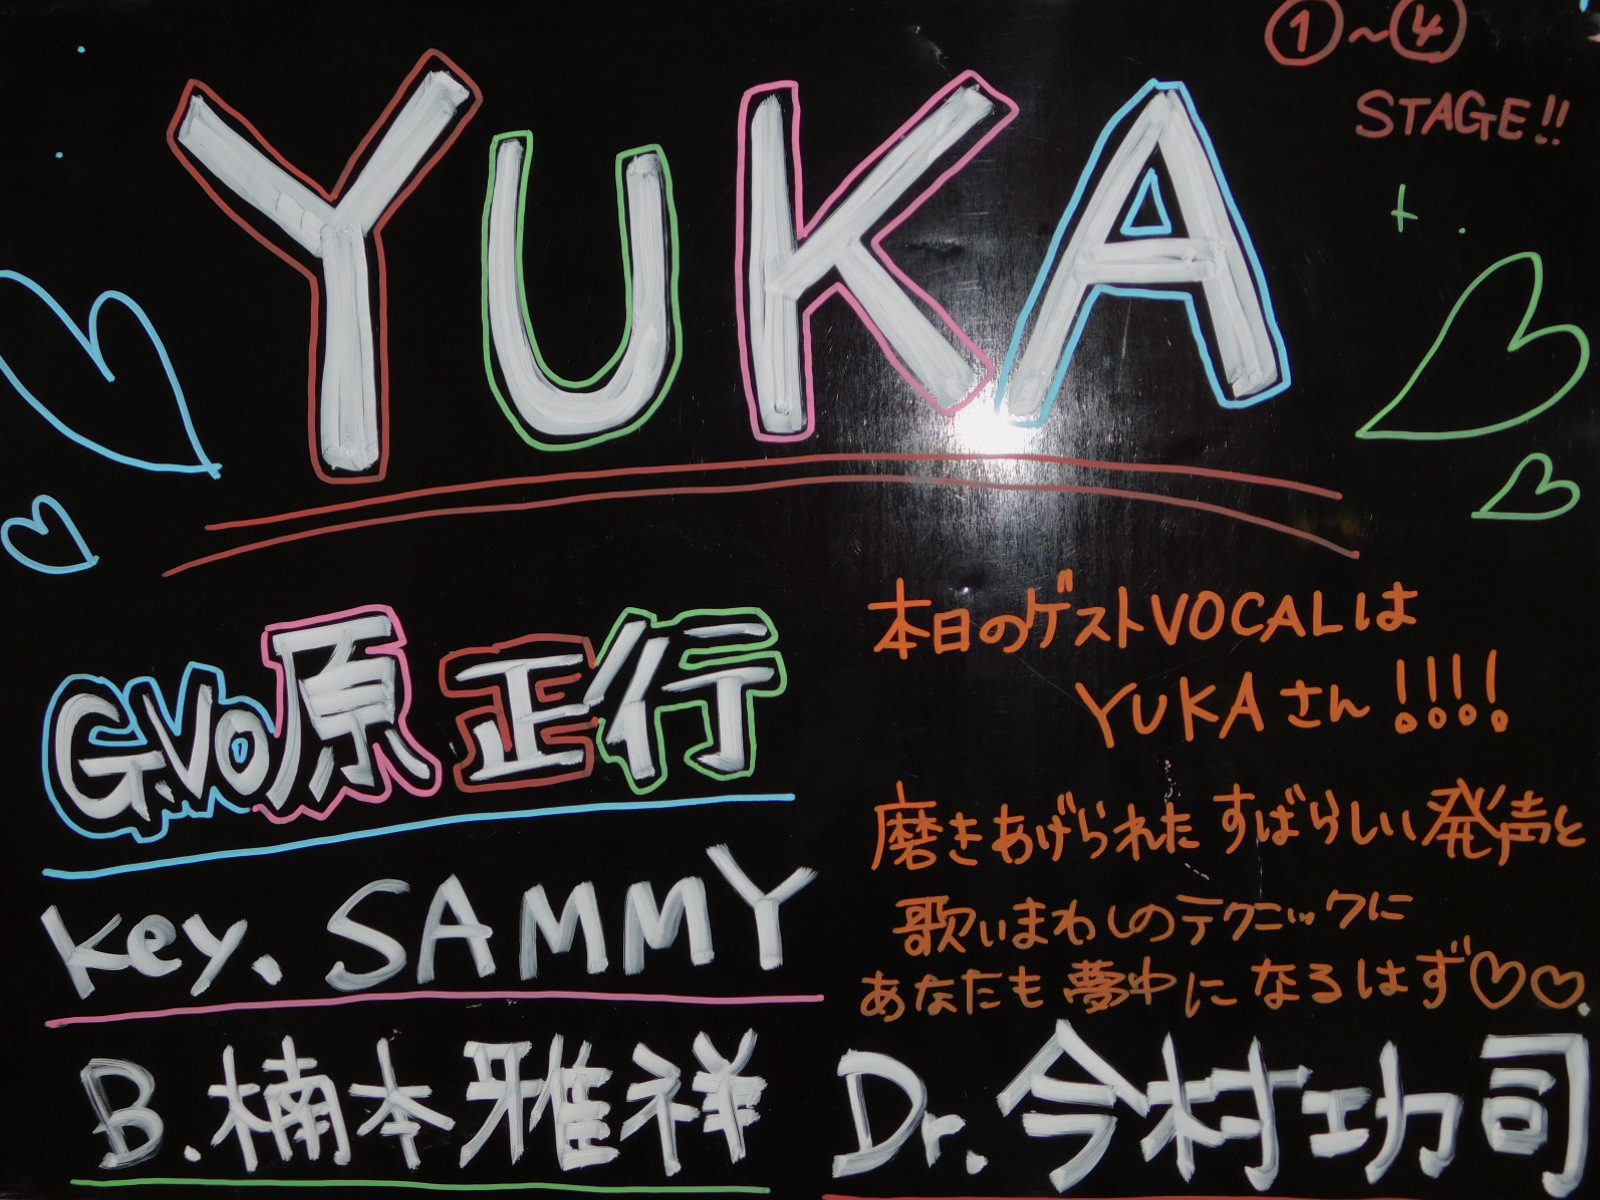 ①~④
STAGE!!
YUKA
G.Vo原 正行
key. SAMMY
B. 楠本 雅祥
本日のゲストVOCALは
YUKAさん!!!!
磨きあげられた すばらしい 発声と
歌いまわしのテクニックに
あなたも 夢中に なるはず♡♡.
Dr. 今村功司